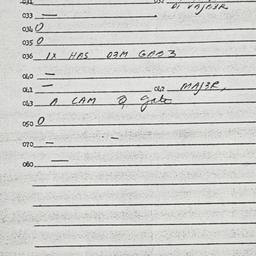 031 032 DI VAJ3ER
033 —
034 0
035 0
036 1X HAS 03M GAB3
040 —
041 — 042 MAJ3R,
043 A CAM @ gate
050 0
070 —
080 —